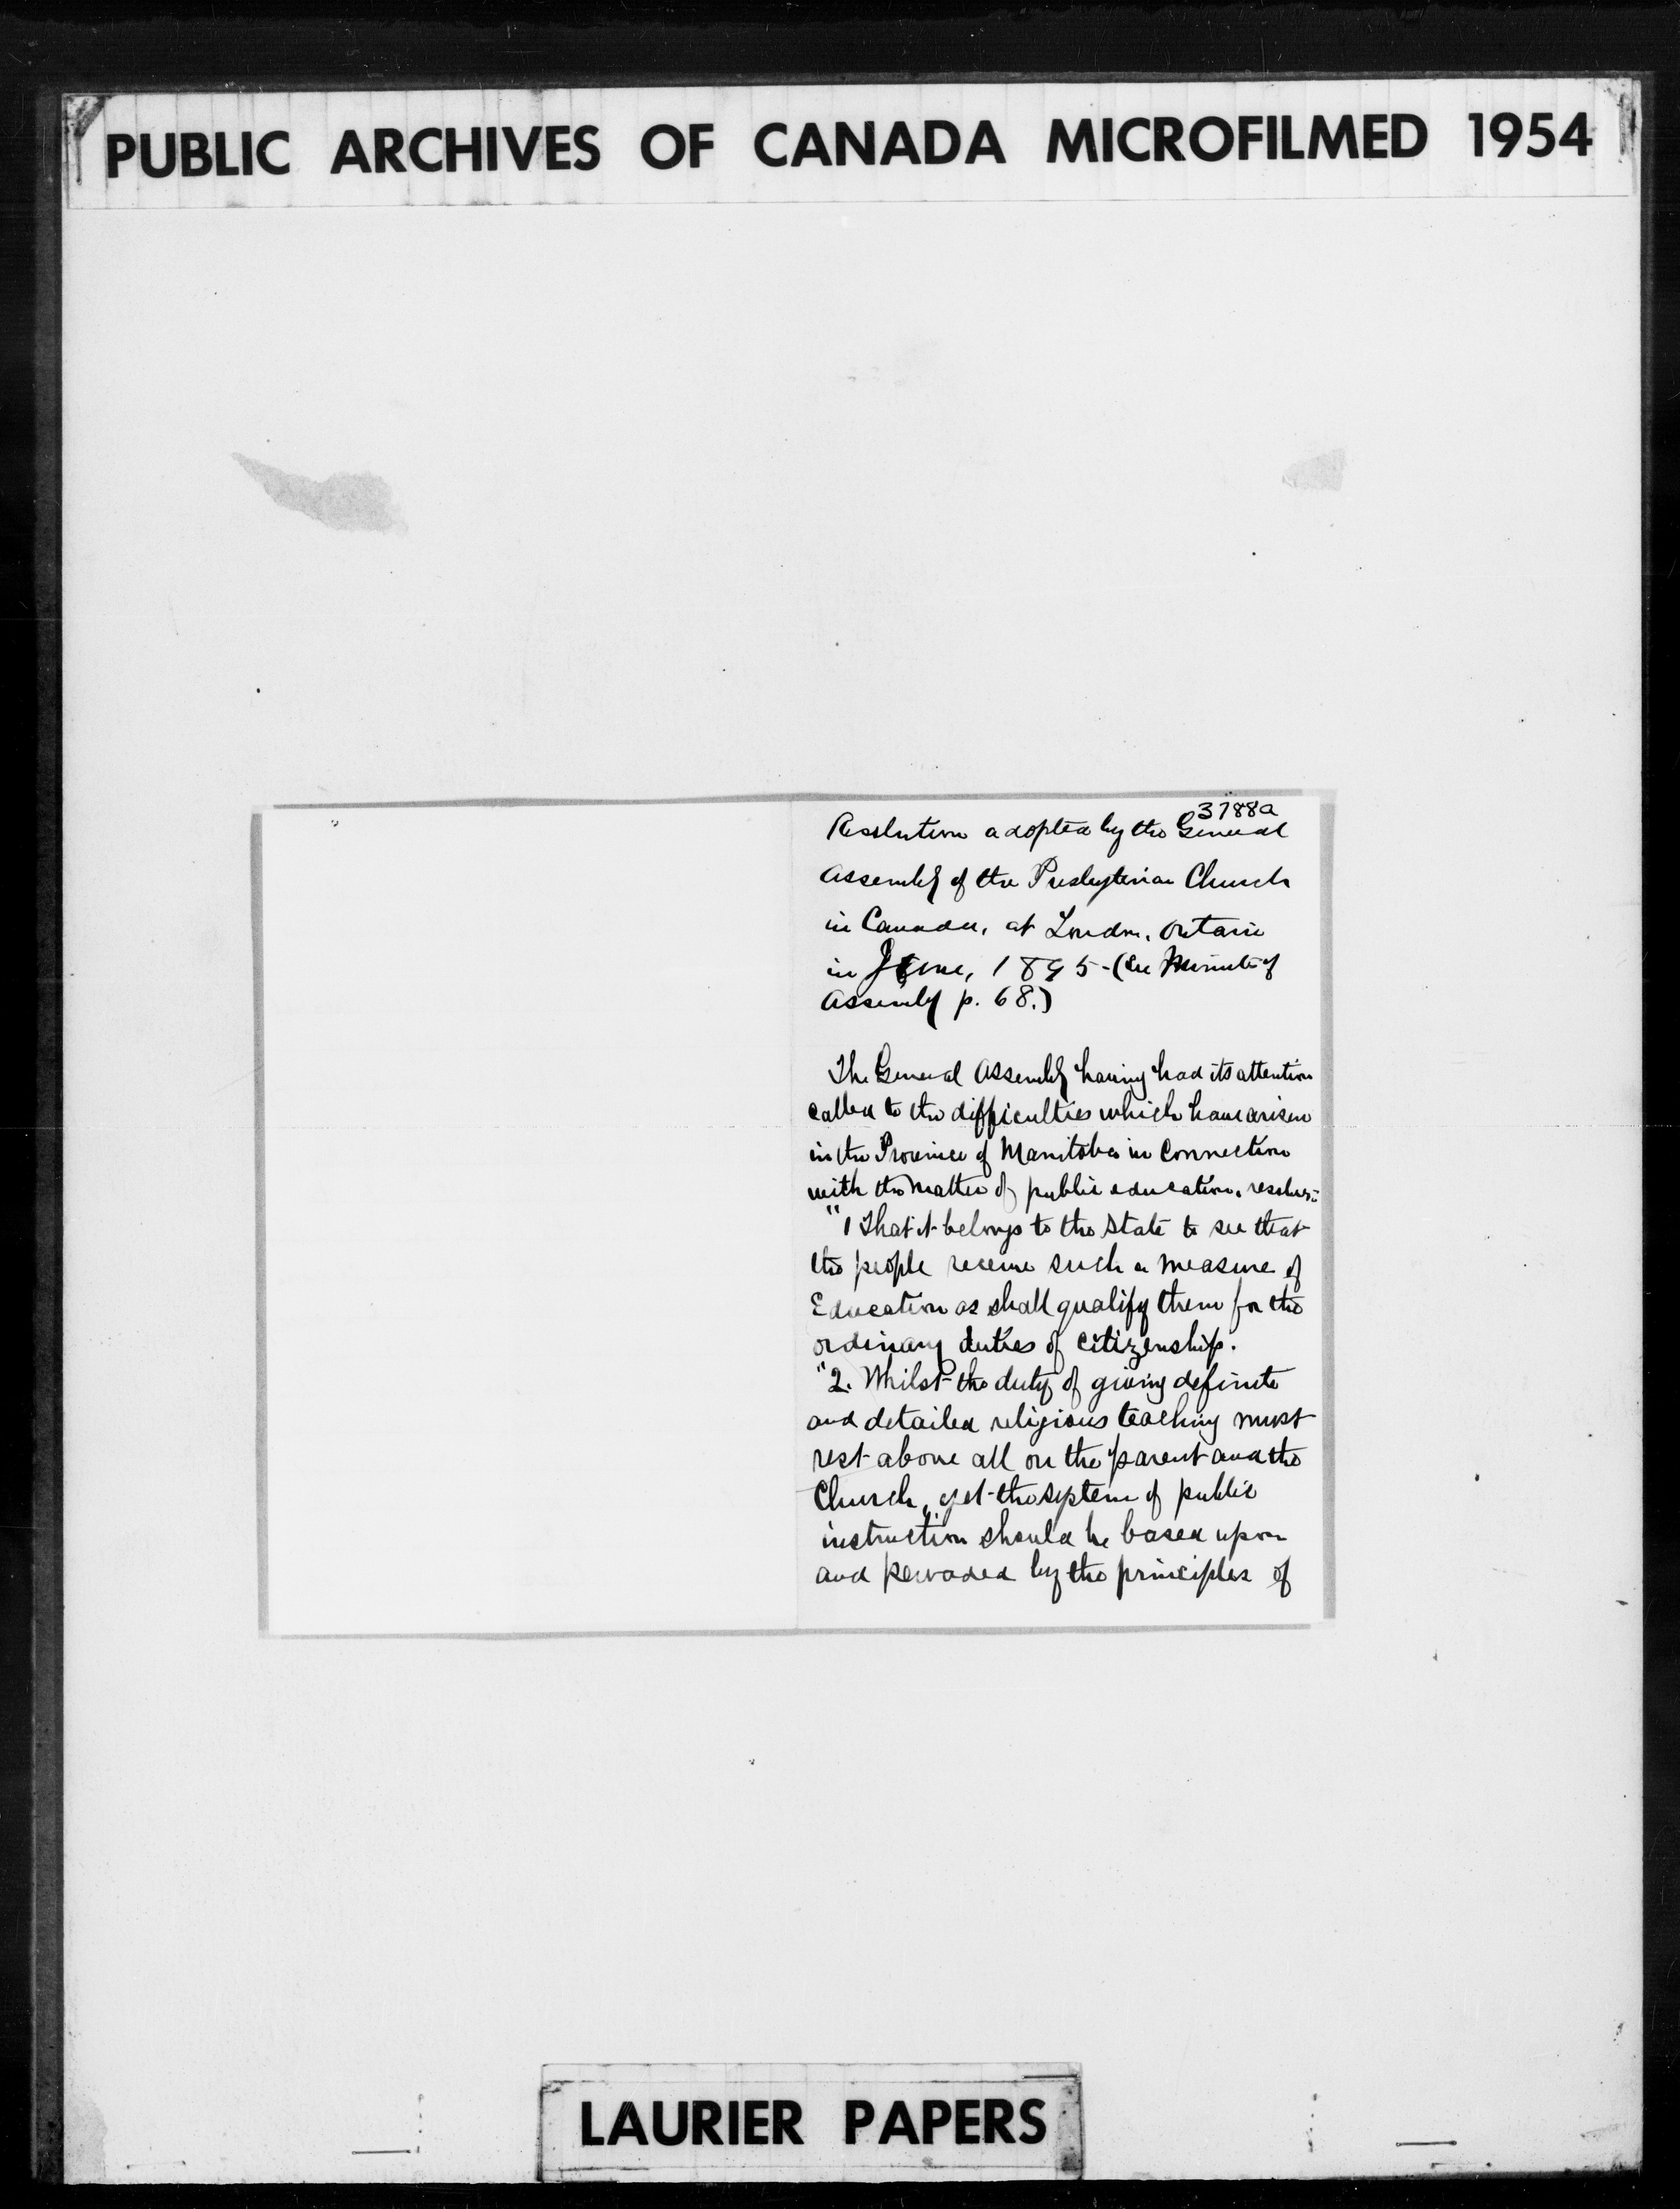 PUBLIC ARCHIVES OF CANADA MICROFILMED 1954
3788a
Resolution adopted by the General
Assembly of the Presbyterian Church
in Canada, at London, Ontario
in June, 1895 - (See Minutes of
Assembly p. 68.)
The General Assembly having had its attention
called to the difficulties which have arisen
in the Province of Manitoba in connection
with the matter of public education, resolves:-
"1 That it belongs to the State to see that
the people receive such a measure of
Education as shall qualify them for the
ordinary duties of citizenship.
"2. Whilst the duty of giving definite
and detailed religious teaching must
rest above all on the parent and the
Church, yet the system of public
instruction should be based upon
and pervaded by the principles of
LAURIER PAPERS